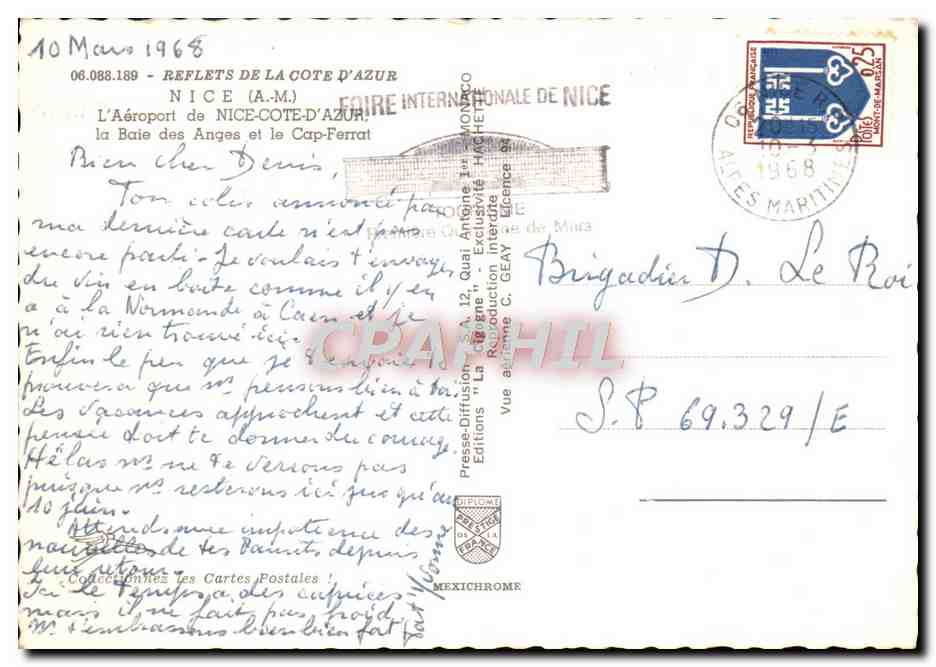 10 Mars 1968
06.088.189 - REFLETS DE LA COTE D'AZUR
NICE (A.-M.)
L'Aéroport de NICE-COTE-D'AZUR,
la Baie des Anges et le Cap-Ferrat
Bien cher Denis,
Ton colis annoncé par
ma dernière carte n'est pas
encore parti. Je voulais t'envoyer
du vin en boite comme il y en
a à la Normande à Caen et je
n'ai rien trouvé ici.
Enfin le peu que je t'envoie te
prouvera que ns pensons bien à toi.
Les vacances approchent et cette
pensée doit te donner du courage.
Hélas ns ne te verrons pas
puisque ns resterons ici jusqu'au
10 juin.
Attends avec impatience des
nouvelles de tes Parents depuis
leur retour.
Collectionnez les Cartes Postales !
Ici le temps a des caprices
mais il ne fait pas froid.
Ns t'embrassons bien bien fort
Yvonne
Presse-Diffusion S.A. 12, Quai Antoine 1er - MONACO
Editions "La cigogne" - Exclusivité HACHETTE
Reproduction interdite
Vue aérienne C. GEAY Licence 94
FOIRE INTERNATIONALE DE NICE
de Mars
REPUBLIQUE FRANÇAISE
0,25
MONT-DE-MARSAN
NICE R.P.
10-3
1968
ALPES MARITIMES
Brigadier D. Le Roi
S.P 69.329/E
DIPLOME
PRESTIGE
DE LA
FRANCE
MEXICHROME
CPAPHIL